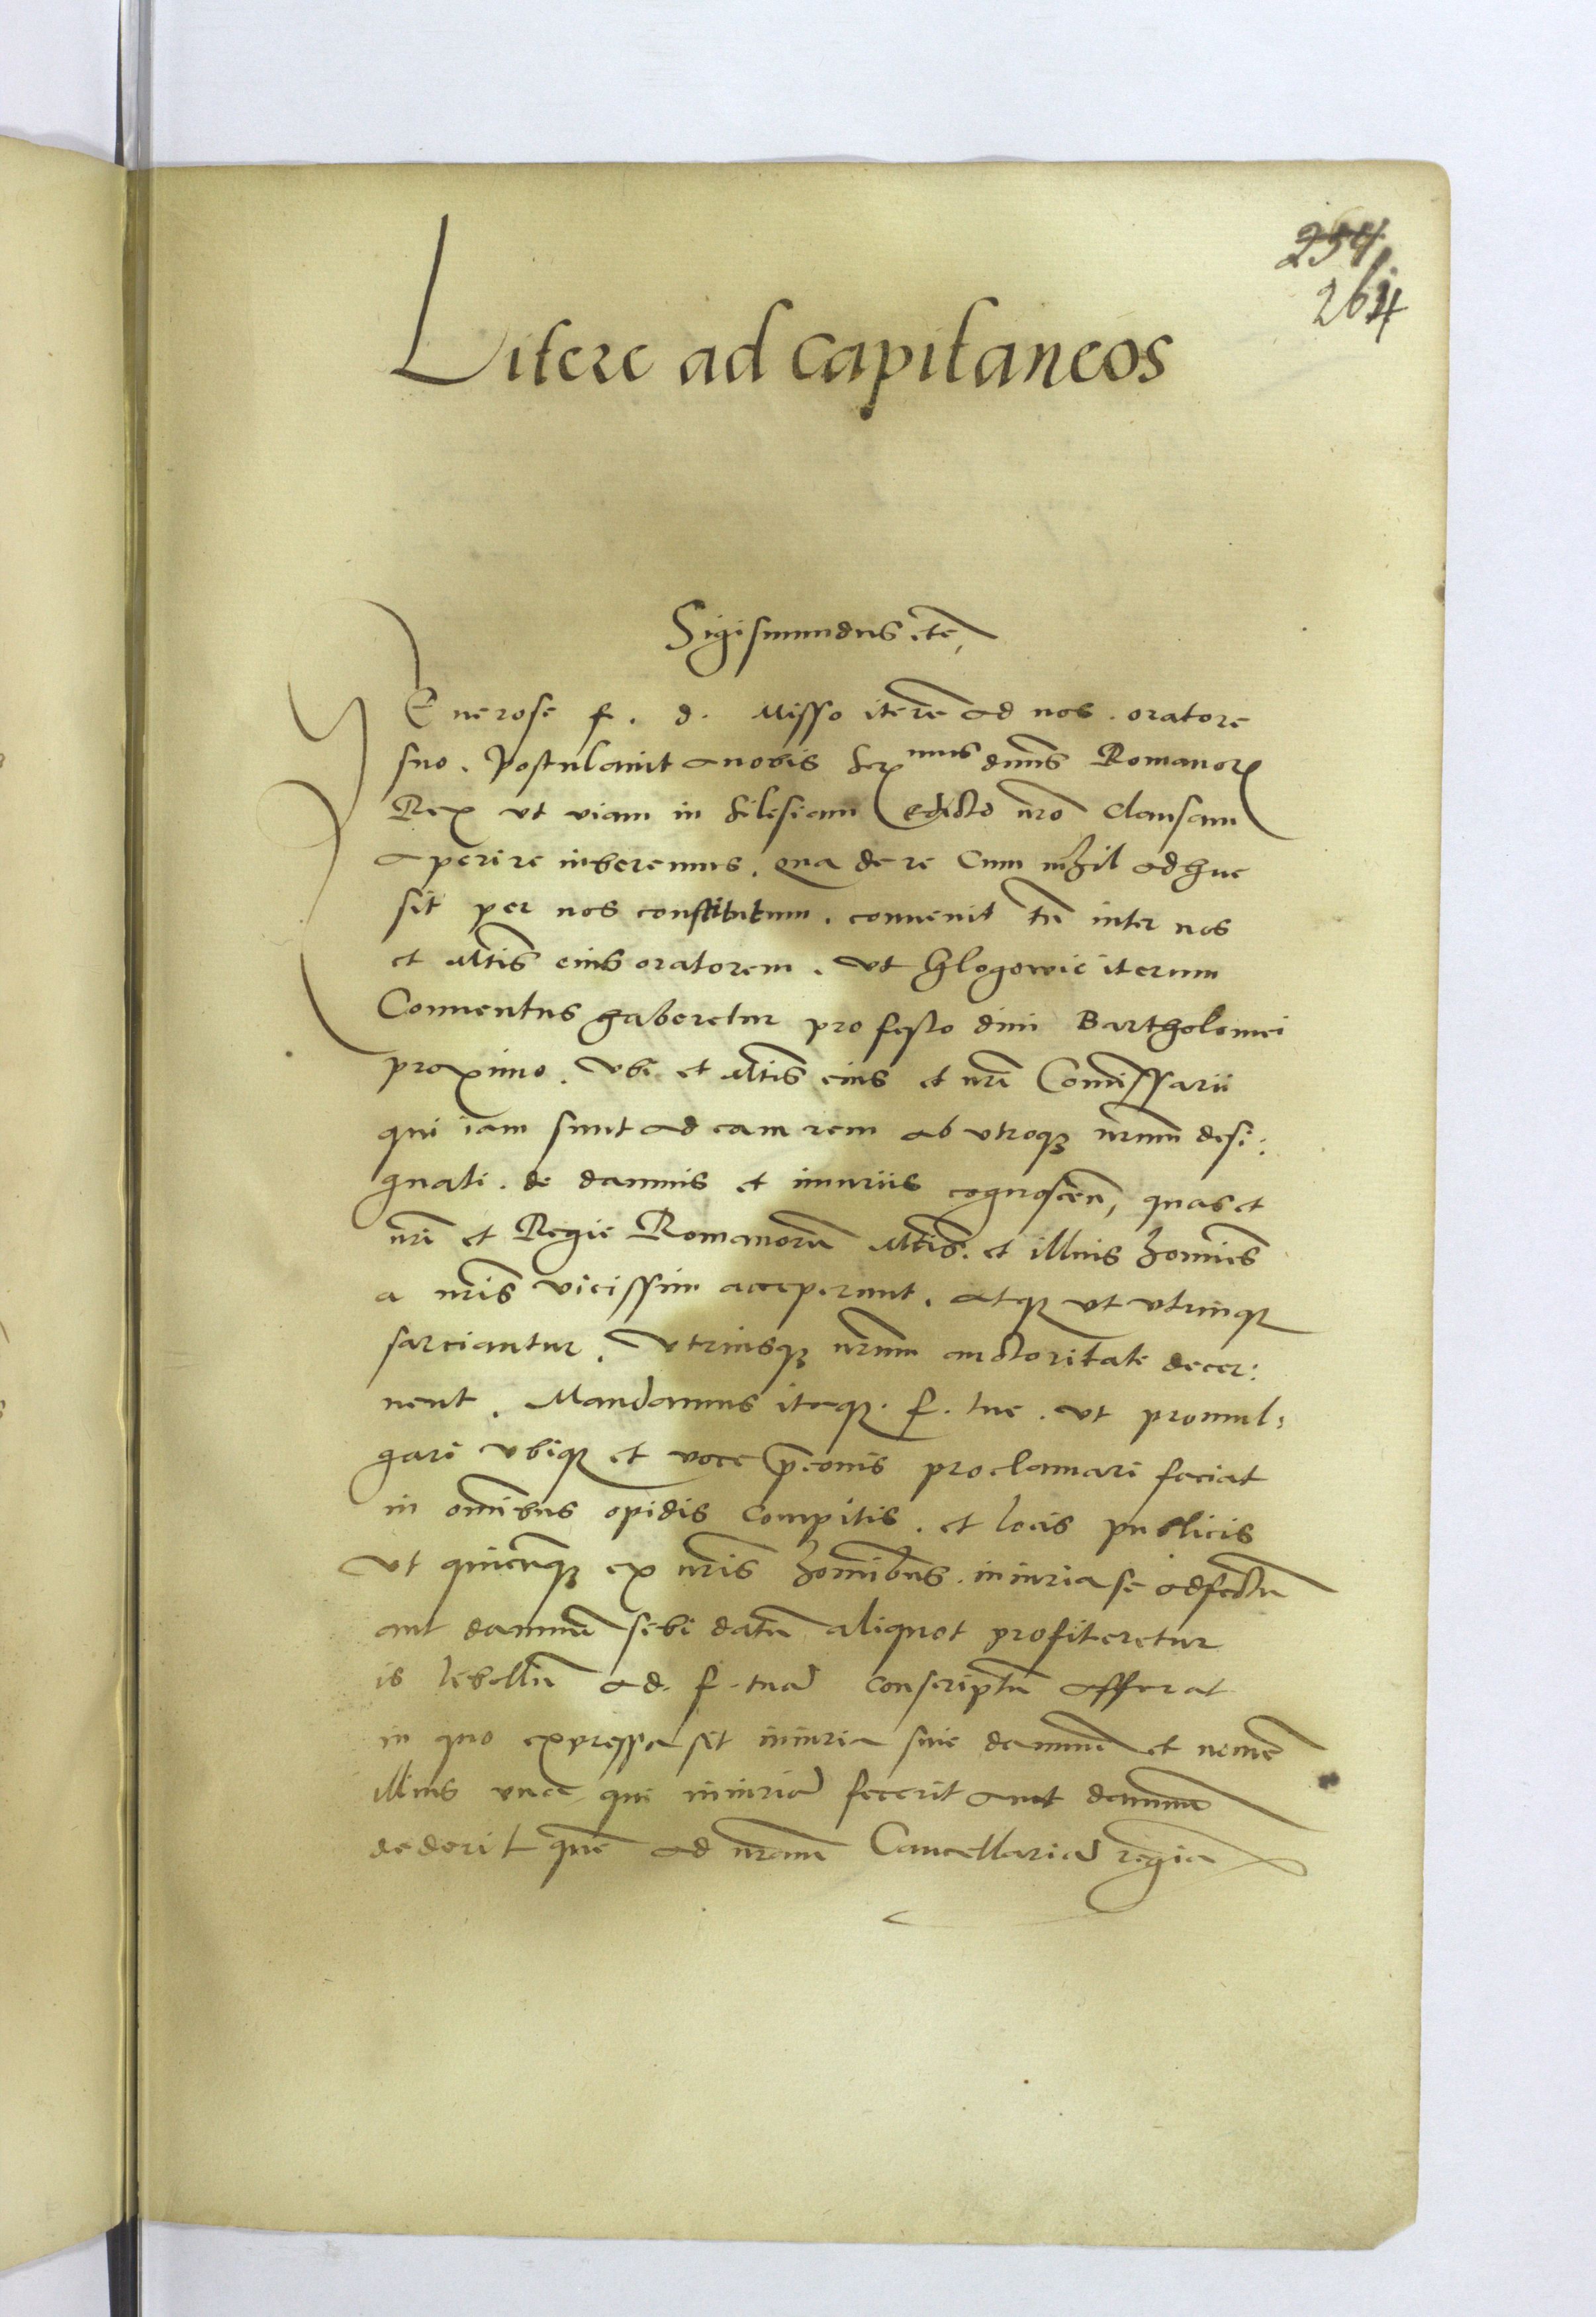 254
264
Litere ad capitaneos
Sigismundus etc̃
Generose f. d. Misso iterũ ad nos oratore
suo. Postulavit a nobis Serᵐᵘˢ dnus Romanorꝝ
Rex ut viam in Silesiam edicto nr̃o clausam
aperire iuberemus. qua de re cum nihil adhuc
sit per nos constitutum. convenit tñ inter nos
et Mtis̃ eius oratorem. Ut Glogowie iterum
Conventus haberetur pro festo divi Bartholomei
proximo. Ubi et Mtis̃ eius et nr̃i Com̃issarii
qui iam sunt ad eam rem ab utroqꝫ nr̃um desi:
gnati. de damnis et iniuriis cognoscent, quas et
nr̃i et Regie Romanorũ Mtis̃. et illius homines̃
a nr̃is vicissim acceperunt. atqꝫ ut utrinqꝫ
sarciantur. Utriusqꝫ nr̃um auctoritate decer:
nent. Mandamus itaqꝫ. f. tue. ut promul:
gari ubiqꝫ et voce p̃conis proclamari faciat
in om̃ibus opidis compitis. et locis publicis
Ut quicunqꝫ ex nr̃is hom̃ibus. iniuria se adfectũ
aut damnũ sibi datũ aliquot profiteretur
is libellũ ad. f. tuã conscriptũ afferat
in quo expressa sit iniuria sive damnũ et nomẽ
illius una qui iniuriã fecerit aut damnũ
dederit quẽ ad nr̃am Cancellariã regiã